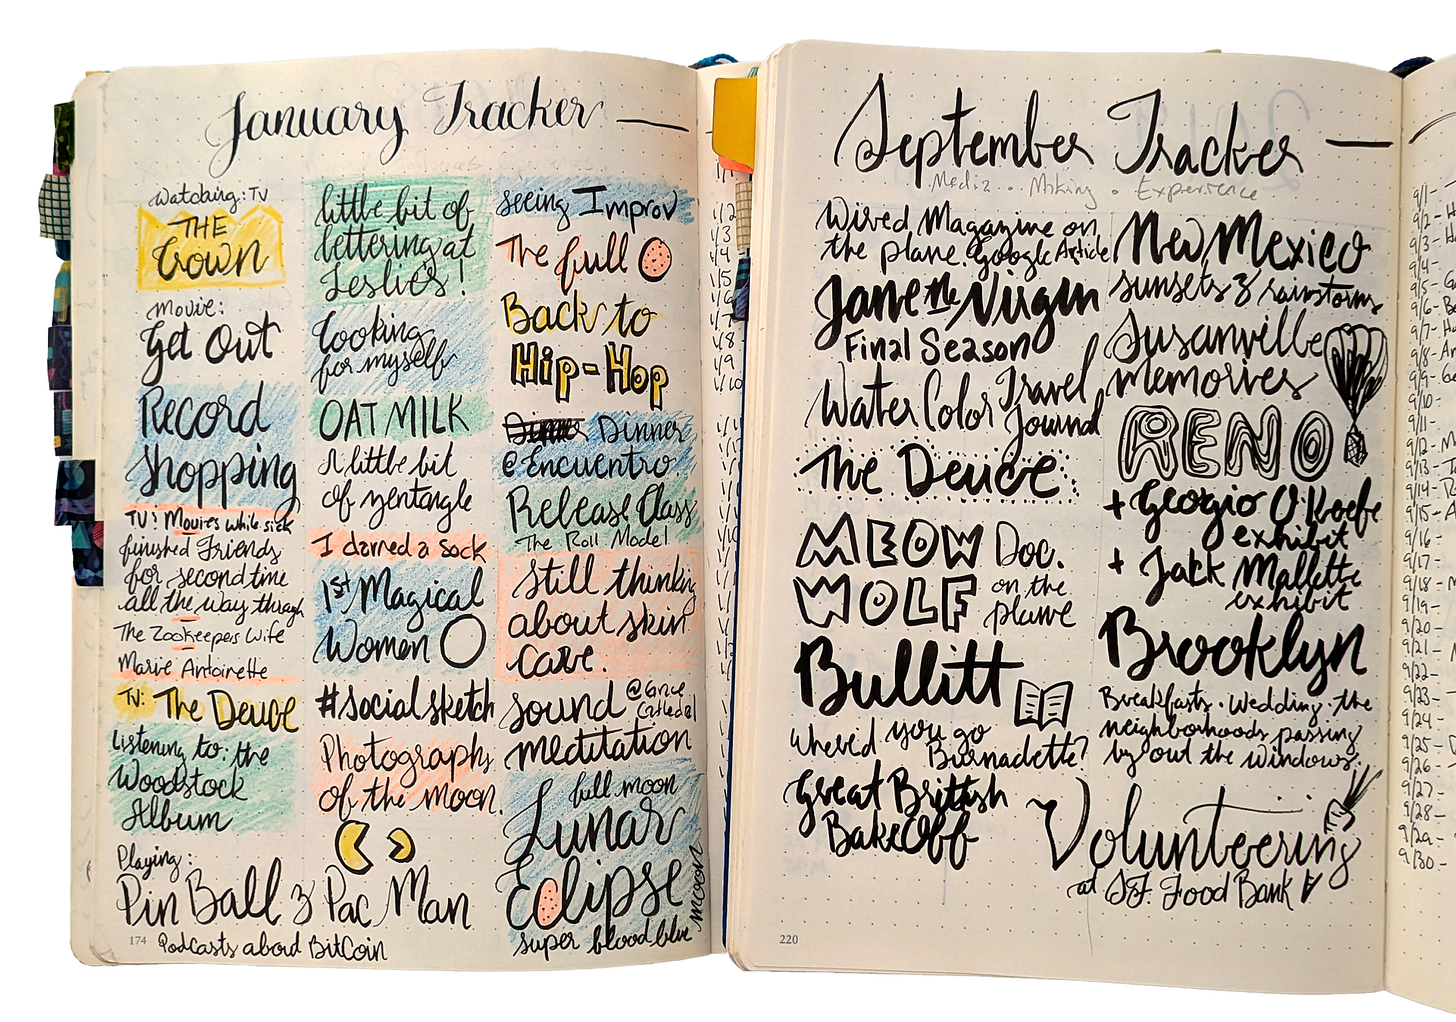 January Tracker
Watching: TV
THE
Crown
Movie:
Get Out
Record
shopping
TV! Movies while sick
finished Friends
for second time
all the way through
The Zookeepers Wife
Marie Antoinette
TV: The Deuce
Listening to: the
Woodstock
Album
Playing:
PinBall & Pac Man
174 Podcasts about BitCoin
little bit of
lettering at
Leslie's!
Cooking
for myself
OAT MILK
A little bit
of zentangle
I darned a sock
1st Magical
Women
#socialsketch
Photographs
of the moon.
seeing Improv
The full
Back to
Hip-Hop
Dinner
@Encuentro
Release Class
The Roll Model
Still thinking
about skin
care.
sound @Grace Cathedral
meditation
full moon
Lunar
Eclipse
super blood blue moon
September Tracker
Media · Making · Experience
Wired Magazine on
the plane. Google Article
Jane the Virgin
Final Season
Water Color Travel
Journal
The Deuce
MEOW Doc.
WOLF on the
plane
Bullitt
Where'd you go
Bernadette?
Great Brittish
BakeOff
New Mexico
sunsets & rainstorms
Susanville
memories
RENO
+ Georgio O'Keefe
exhibit
+ Jack Mallette
exhibit
Brooklyn
Breakfasts · Wedding · the
neighborhoods passing
by out the windows.
Volunteering
at S.F. Food Bank
220
9/1-
9/2-
9/3-
9/4-
9/5-
9/6-
9/7-
9/8-
9/9-
9/10-
9/11-
9/12-
9/13-
9/14-
9/15-
9/16-
9/17-
9/18-
9/19-
9/20-
9/21-
9/22-
9/23-
9/24-
9/25-
9/26-
9/27-
9/28-
9/29-
9/30-